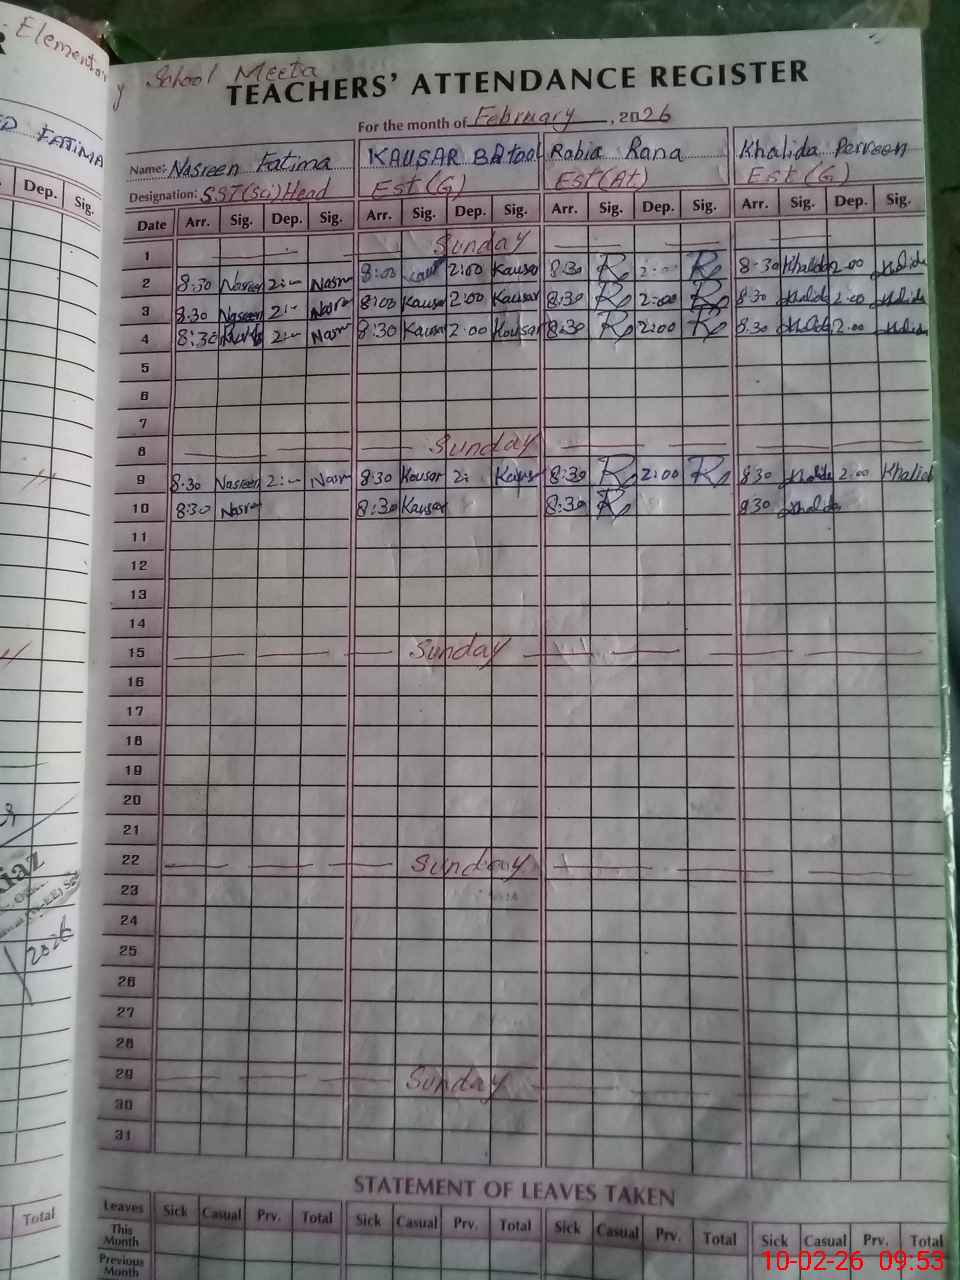 Elementar
y School Meeta
TEACHERS' ATTENDANCE REGISTER
For the month of February, 2026
FATIMA
Name: Nasreen Fatima KAUSAR BAtool Rabia Rana Khalida Parveen
Designation: S.ST(Sci)Head Est(G) Est(At) Est(G)
Dep. Sig.
Date Arr. Sig. Dep. Sig. Arr. Sig. Dep. Sig. Arr. Sig. Dep. Sig. Arr. Sig. Dep. Sig.
1 Sunday
2 8:30 Nasreen 2:— Nasr 8:00 2:00 Kausa 8:30 R 2:00 R 8:30 Khalida 2:00 Khalida
3 8:30 Nasreen 2:— Nasr 8:00 Kausar 2:00 Kausar 8:30 R 2:00 R 8:30 Khalida 2:00 Khalida
4 8:30 2:— Nasr 8:30 Kausar 2:00 Kousar 8:30 R 2:00 R 8:30 Khalida 2:00 Khalida
5
6
7
8 Sunday
9 8:30 Nasreen 2:— Nasr 8:30 Kousar 2: Kausar 8:30 R 2:00 R 8:30 Khalida 2:00 Khalid
10 8:30 Nasre 8:30 Kausar 8:30 R 8:30 Khalida
11
12
13
14
15 Sunday
16
17
18
19
20
21
22 Sunday
23
24
25
26
27
28
29 Sunday
30
31
2026
STATEMENT OF LEAVES TAKEN
Total
Leaves Sick Casual Prv. Total Sick Casual Prv. Total Sick Casual Prv. Total Sick Casual Prv. Total
This Month
Previous Month
10-02-26 09:53